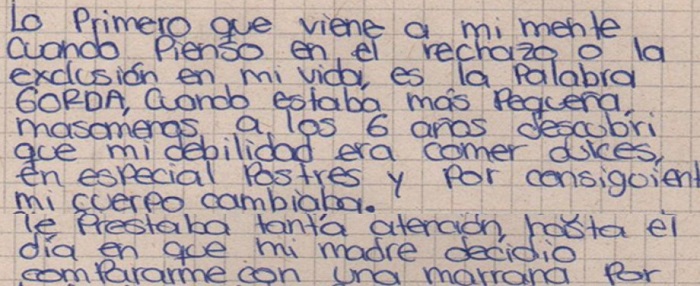 Lo Primero que viene a mi mente
cuando Pienso en el rechazo o la
exclusión en mi vida, es la Palabra
GORDA, cuando estaba más Pequeña,
masomenos a los 6 años descubri
que mi debilidad era comer dulces,
en especial Postres y Por consiguient
mi cuerpo cambiaba.
le Prestaba tanta atención, hasta el
día en que mi madre decidio
compararme con una marrana Por